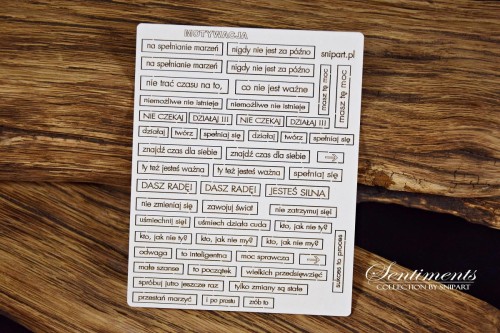 MOTYWACJA
na spełnianie marzeń nigdy nie jest za późno snipart.pl
na spełnianie marzeń nigdy nie jest za późno
nie trać czasu na to, co nie jest ważne masz tę moc masz tę moc
niemożliwe nie istnieje niemożliwe nie istnieje
NIE CZEKAJ DZIAŁAJ !!! NIE CZEKAJ DZIAŁAJ !!!
działaj twórz spełniaj się działaj twórz spełniaj się
znajdź czas dla siebie znajdź czas dla siebie
ty też jesteś ważna ty też jesteś ważna spełniaj się
DASZ RADĘ! DASZ RADĘ! JESTEŚ SILNA
nie zmieniaj się zawojuj świat nie zatrzymuj się!
uśmiechnij się! uśmiech działa cuda kto, jak nie my?
kto, jak nie ty? kto, jak nie my? kto, jak nie my?
odwaga to inteligentna moc sprawcza
małe szanse to początek wielkich przedsięwzięć sukces to proces
spróbuj jutro jeszcze raz tylko zmiany są stałe
przestań marzyć i po prostu zrób to
Sentiments
COLLECTION BY SNIPART